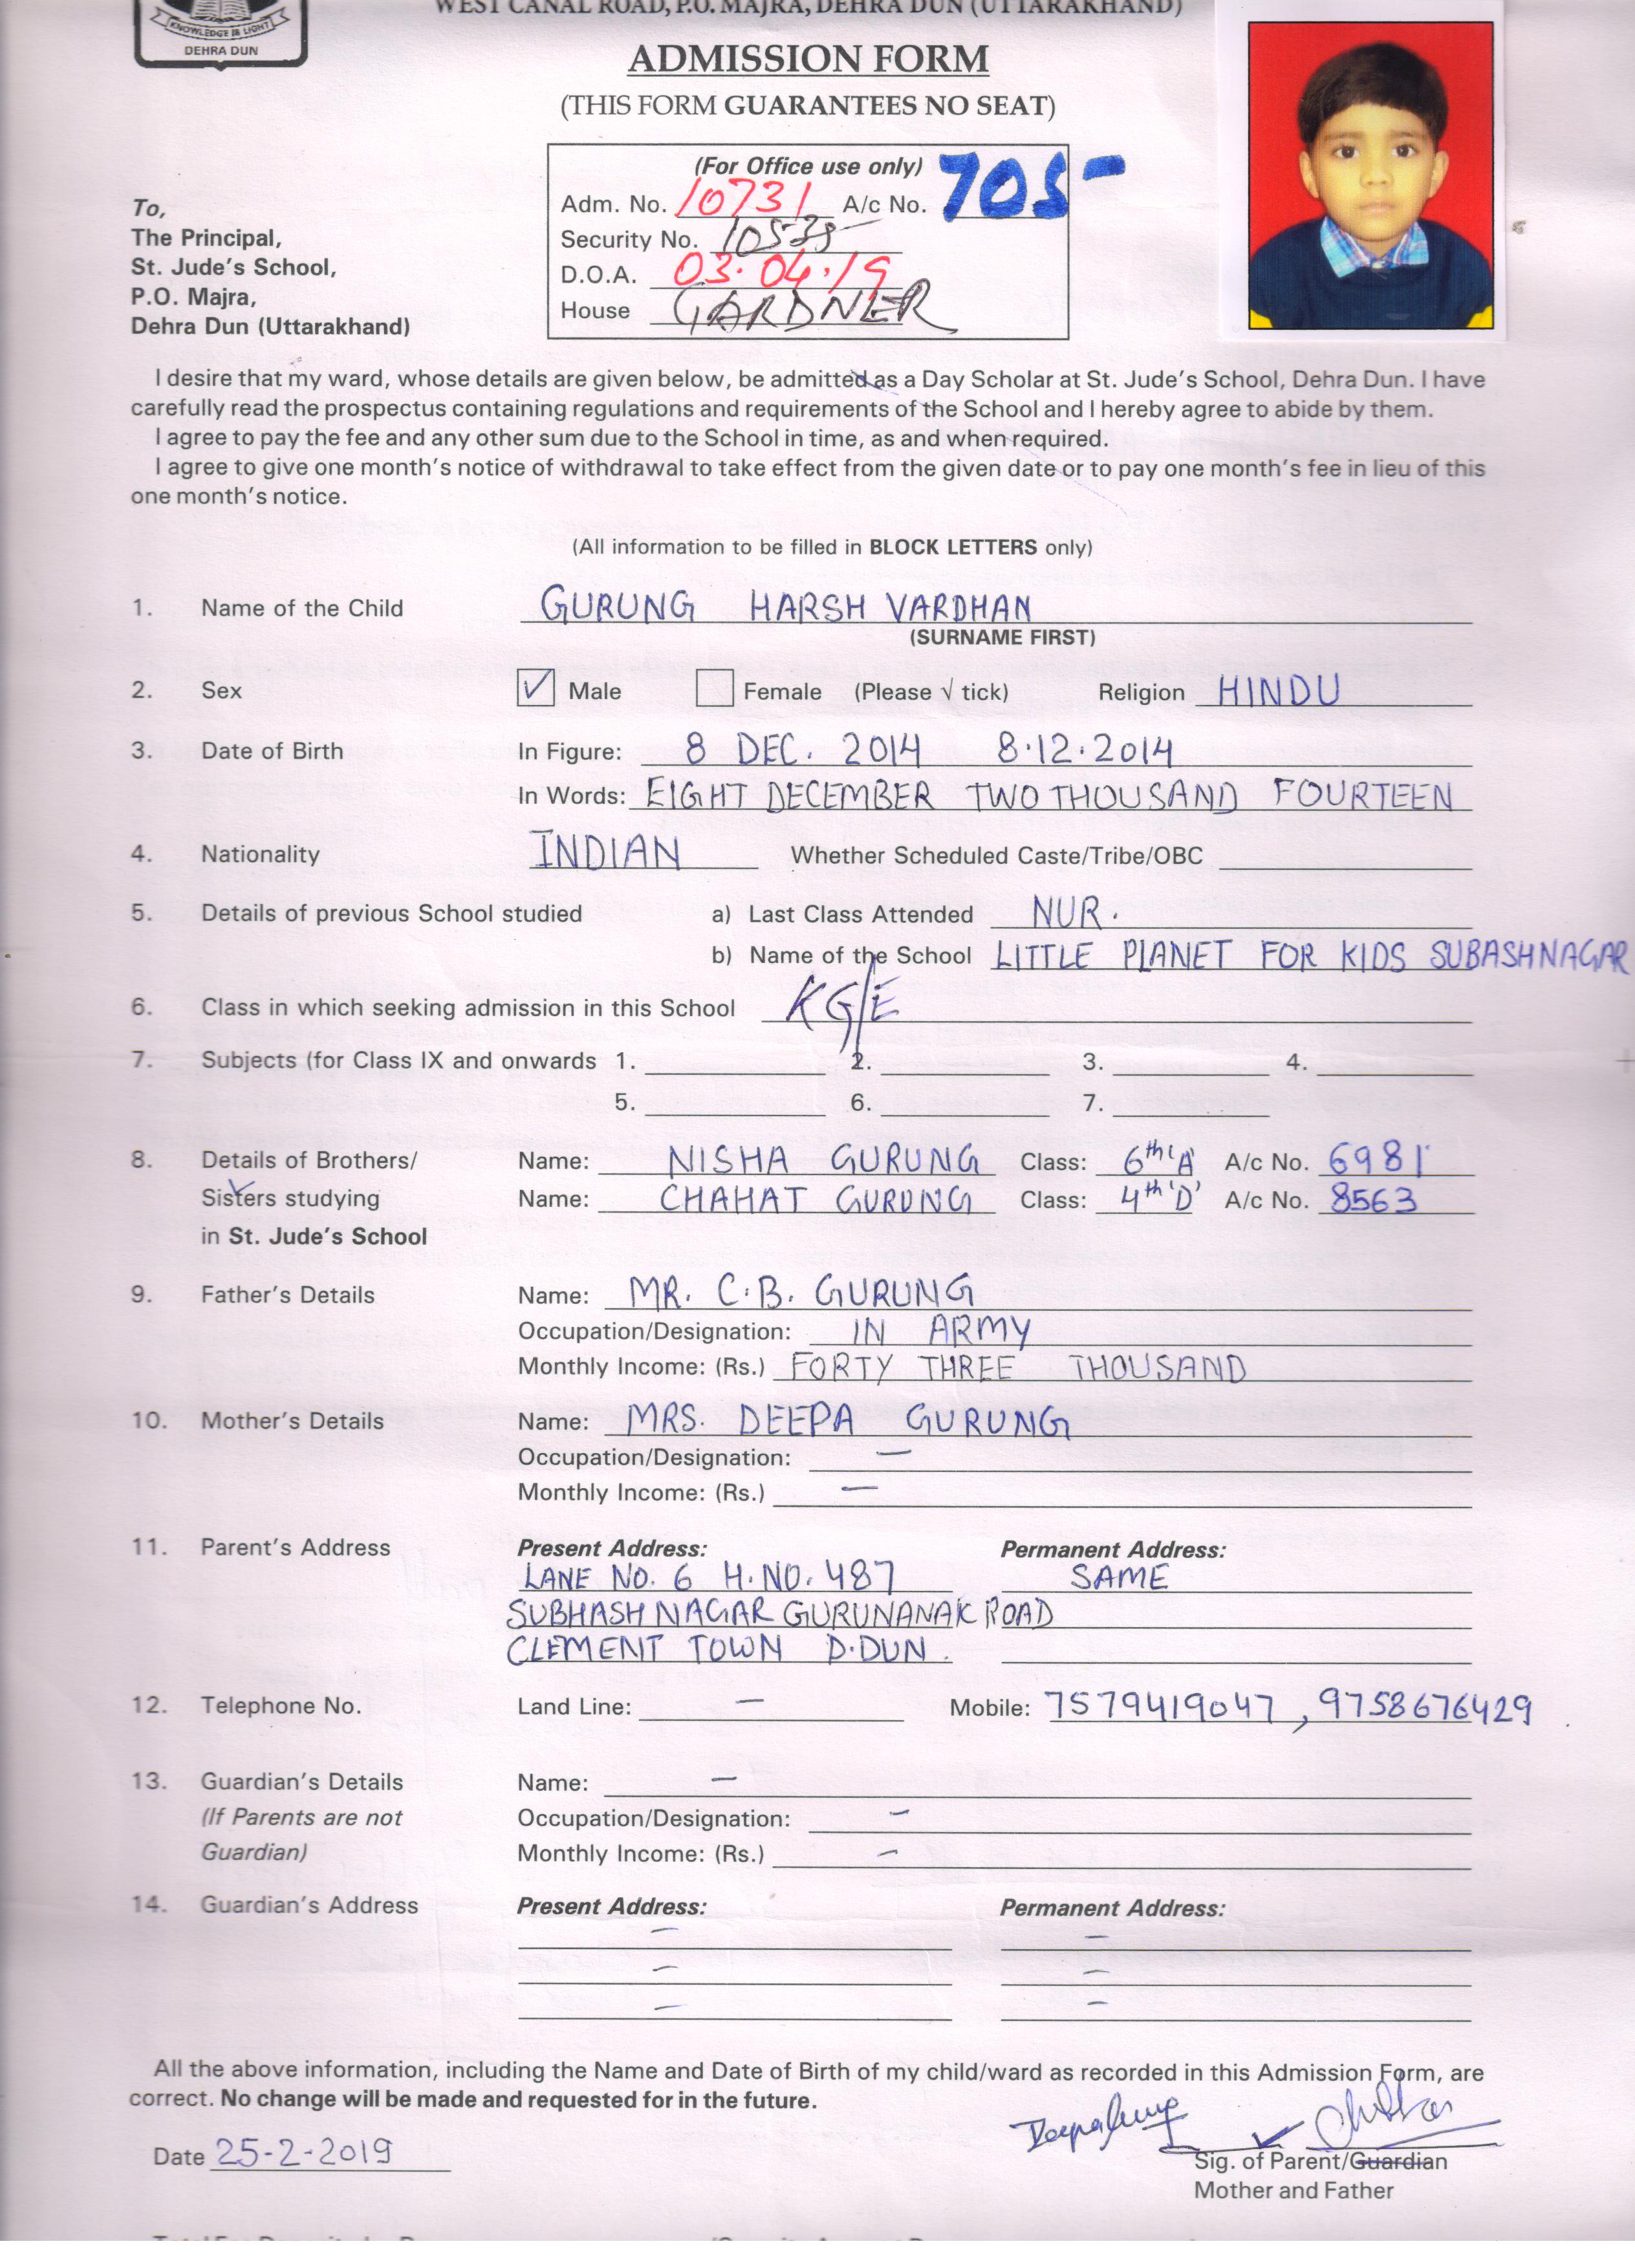 WEST CANAL ROAD, P.O. MAJRA, DEHRA DUN (UTTARAKHAND)
KNOWLEDGE IS LIGHT
DEHRA DUN
ADMISSION FORM
(THIS FORM GUARANTEES NO SEAT)
(For Office use only)
Adm. No. 10731 A/c No. 705-
Security No.
D.O.A. 03.04.19
House GARDNER
To,
The Principal,
St. Jude's School,
P.O. Majra,
Dehra Dun (Uttarakhand)
I desire that my ward, whose details are given below, be admitted as a Day Scholar at St. Jude's School, Dehra Dun. I have
carefully read the prospectus containing regulations and requirements of the School and I hereby agree to abide by them.
I agree to pay the fee and any other sum due to the School in time, as and when required.
I agree to give one month's notice of withdrawal to take effect from the given date or to pay one month's fee in lieu of this
one month's notice.
(All information to be filled in BLOCK LETTERS only)
1. Name of the Child GURUNG HARSH VARDHAN
(SURNAME FIRST)
2. Sex ✓ Male Female (Please √ tick) Religion HINDU
3. Date of Birth In Figure: 8 DEC. 2014 8.12.2014
In Words: EIGHT DECEMBER TWO THOUSAND FOURTEEN
4. Nationality INDIAN Whether Scheduled Caste/Tribe/OBC
5. Details of previous School studied a) Last Class Attended NUR.
b) Name of the School LITTLE PLANET FOR KIDS SUBASHNAGAR
6. Class in which seeking admission in this School KG/E
7. Subjects (for Class IX and onwards 1. 2. 3. 4.
5. 6. 7.
8. Details of Brothers/ Name: NISHA GURUNG Class: 6th 'A' A/c No. 6981
Sisters studying Name: CHAHAT GURUNG Class: 4th 'D' A/c No. 8563
in St. Jude's School
9. Father's Details Name: MR. C.B. GURUNG
Occupation/Designation: IN ARMY
Monthly Income: (Rs.) FORTY THREE THOUSAND
10. Mother's Details Name: MRS. DEEPA GURUNG
Occupation/Designation: —
Monthly Income: (Rs.) —
11. Parent's Address Present Address: Permanent Address:
LANE NO. 6 H.NO. 487 SAME
SUBHASH NAGAR GURUNANAK ROAD
CLEMENT TOWN D.DUN.
12. Telephone No. Land Line: — Mobile: 7579419047, 9758676429
13. Guardian's Details Name: —
(If Parents are not Occupation/Designation: —
Guardian) Monthly Income: (Rs.) —
14. Guardian's Address Present Address: Permanent Address:
— —
— —
— —
All the above information, including the Name and Date of Birth of my child/ward as recorded in this Admission Form, are
correct. No change will be made and requested for in the future.
Deepa Gurung
Date 25-2-2019
Sig. of Parent/Guardian
Mother and Father